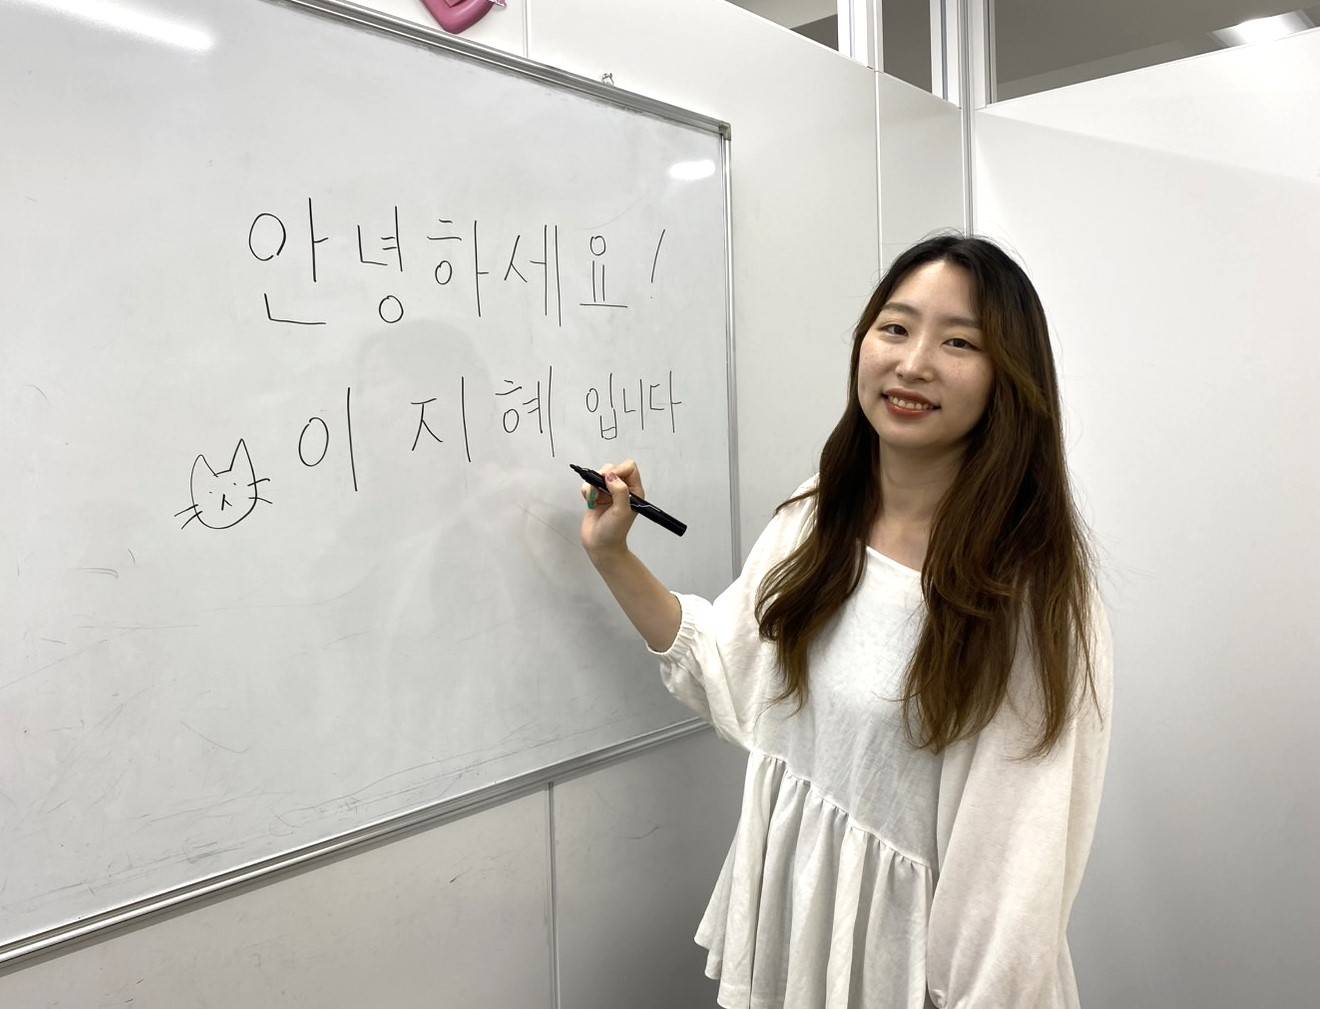 안녕하세요!
이지혜 입니다